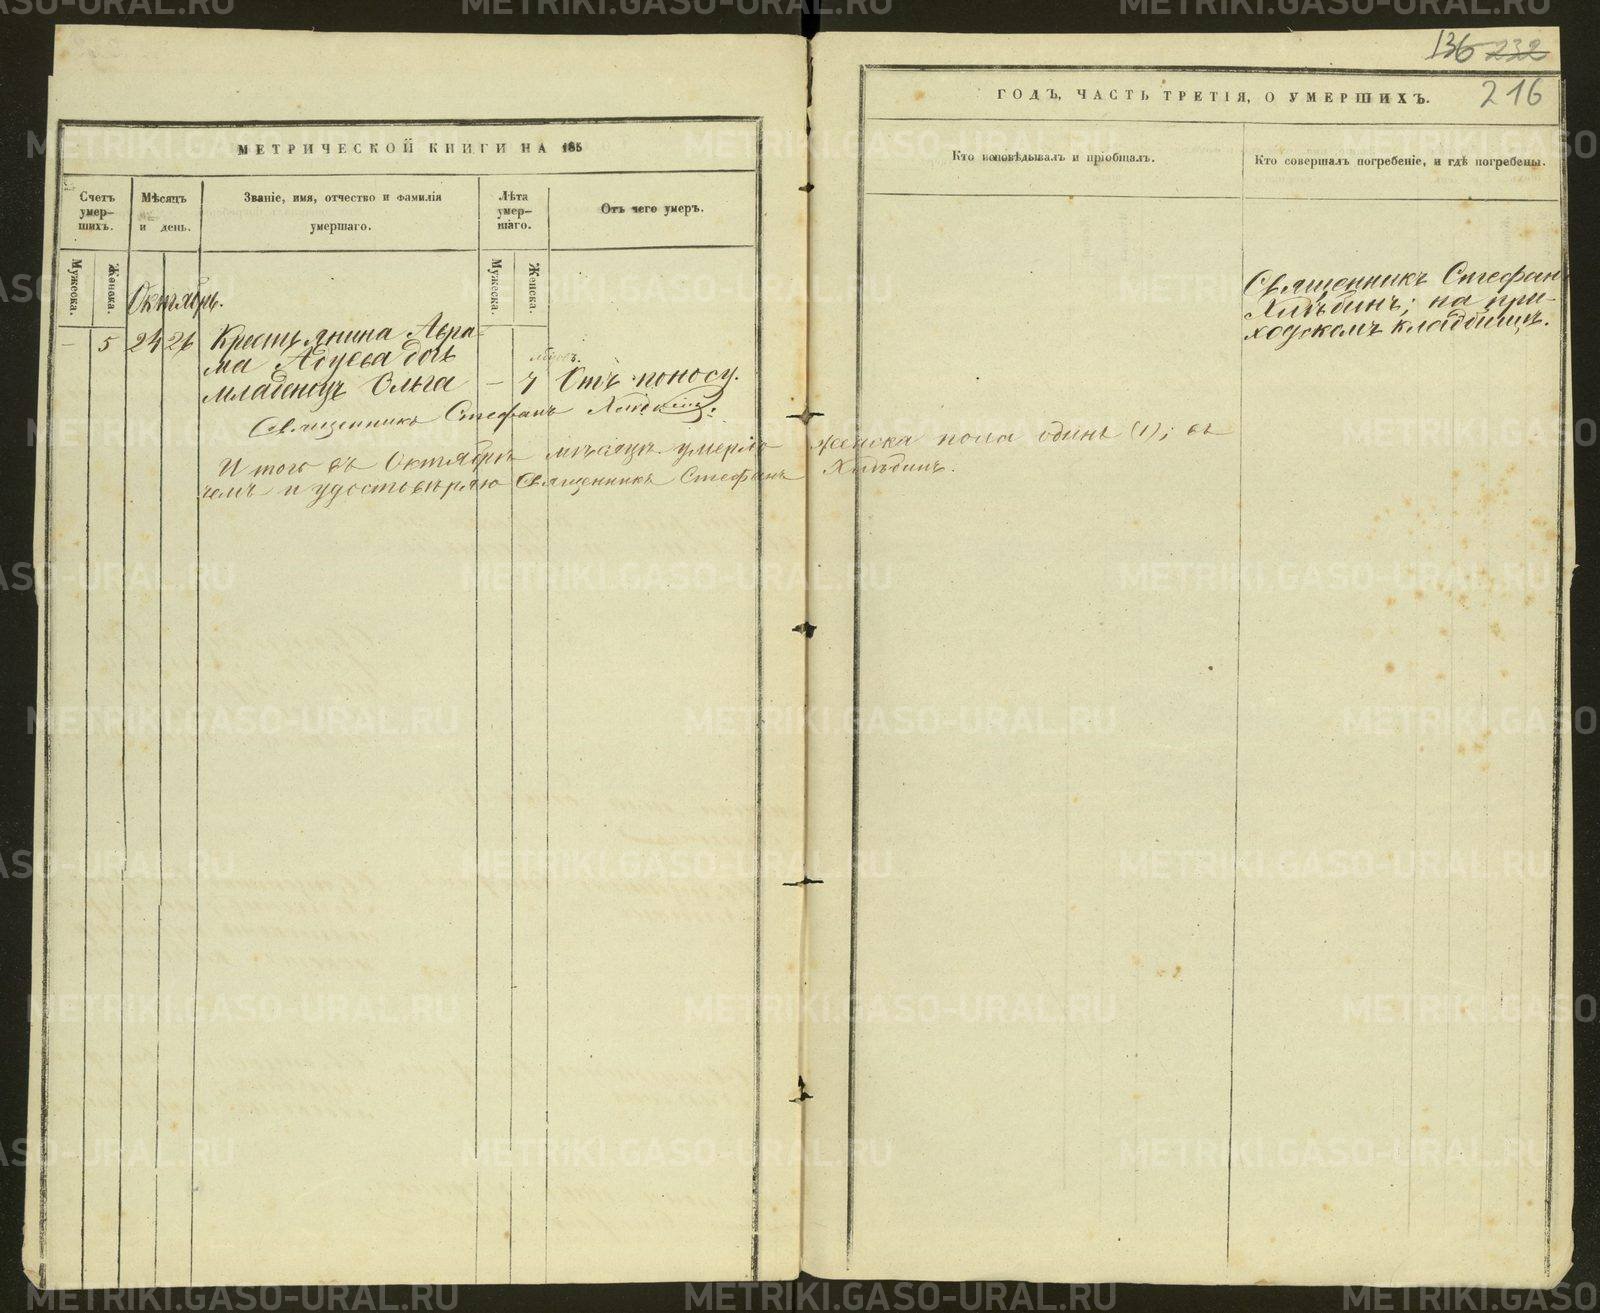 МЕТРИЧЕСКОЙ КНИГИ НА 185
Счетъ умер-шихъ.
Мѣсяцъ и день.
Званіе, имя, отчество и фамилія умершаго.
Лѣта умер-шаго.
Отъ чего умеръ.
Мужеска.
Женска.
Мужеска.
Женска.
Октябрь.
— 5 24 26 Крестьянина Авра-
ма дочь
младенецъ Ольга — 7 Отъ поносу.
Священникъ Стефанъ
Итого въ Октябрѣ мѣсяцѣ умерло женска пола одинъ (1); въ
чемъ и удостовѣряю Священникъ Стефанъ Хлѣбинъ.
136 232
216
ГОДЪ, ЧАСТЬ ТРЕТІЯ, О УМЕРШИХЪ.
Кто исповѣдывалъ и пріобщалъ.
Кто совершалъ погребеніе, и гдѣ погребены.
Священникъ Стефанъ
Хлѣбинъ; на при-
ходскомъ кладбищѣ.
METRIKI.GASO-URAL.RU